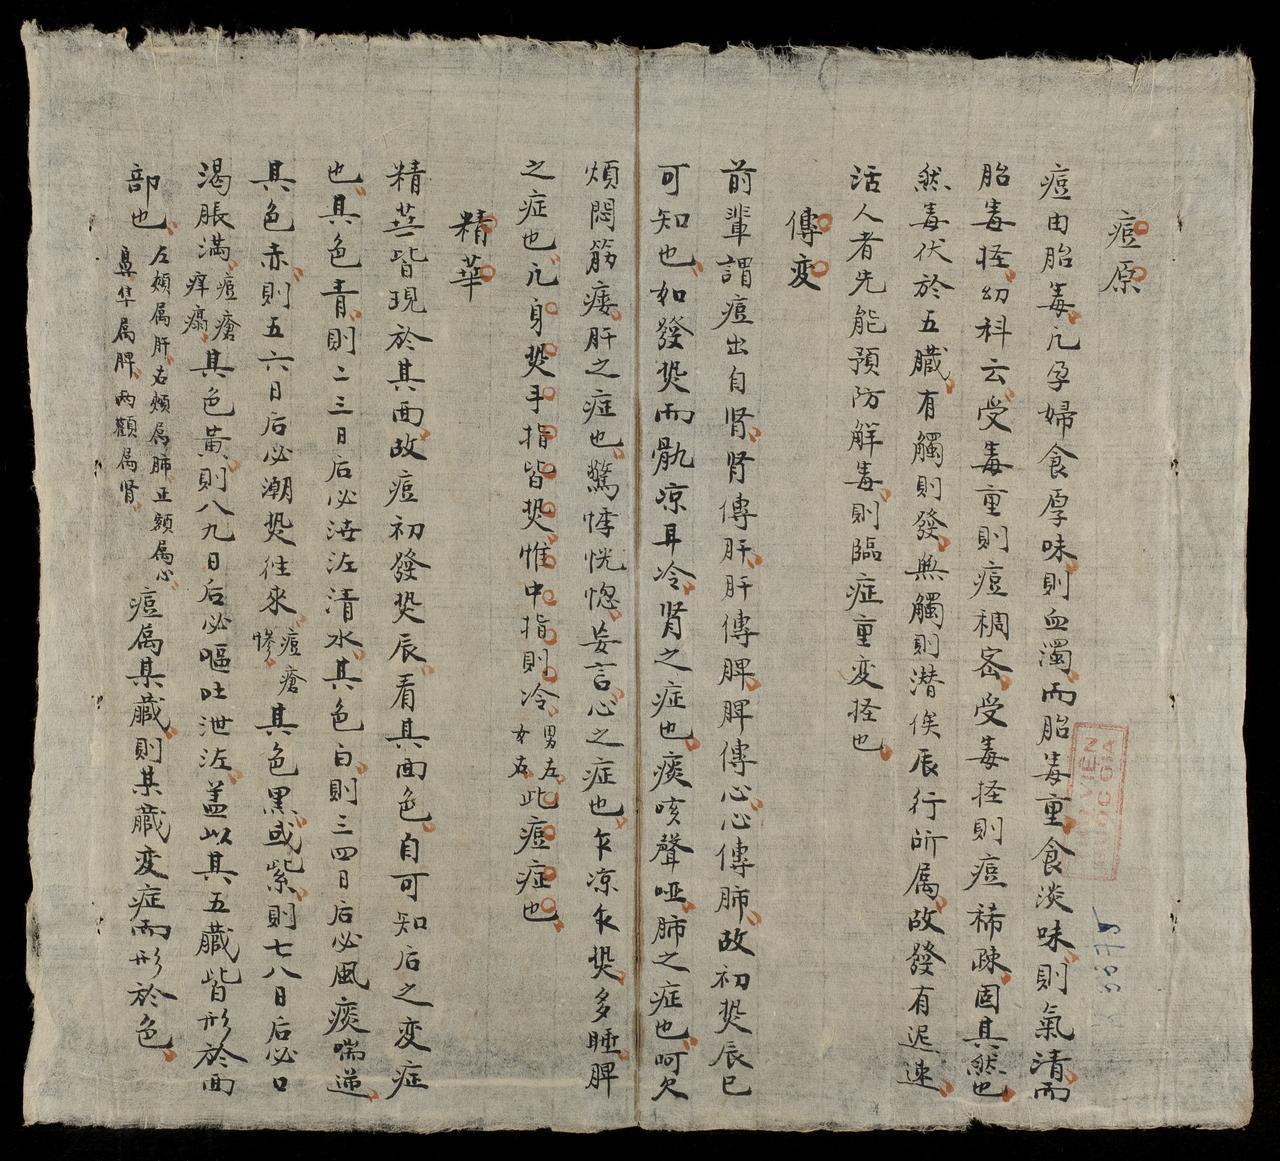 痘原
痘由胎毒凢孕婦食厚味則血濁而胎毒重食淡味則氣清而
胎毒䡖幼科云受毒重則痘稠宻受毒䡖則痘稀疎固其然也
然毒伏於五臓有觸則發無觸則潜俟辰行所属故發有迟速
活人者先能預防觧毒則臨症重変䡖也
傳変
前輩謂痘出自肾肾傳肝肝傳脾脾傳心心傳肺故初𤍠辰已
可知也如發𤍠而骩凉耳冷肾之症也痰咳聲哑肺之症也呵欠
煩悶筋痿肝之症也驚悸恍惚妄言心之症也乍凉乍𤍠多睡脾
之症也凢身𤍠手指皆𤍠惟中指則冷男左女右此痘症也
精華
精華皆現於其面故痘初發𤍠辰看其面色自可知后之変症
也其色青則二三日后必泄泻清水其色白則三四日后必風痰喘逆
其色赤則五六日后必潮𤍠往來痘瘡慘其色黒或紫則七八日后必口
渴脹滿痘瘡痒癗其色黃則八九日后必嘔吐泄泻盖以其五臓皆形於面
部也左頬属肝右頬属肺正額属心鼻华属脾両顴属肾痘属某臓則某臓変症而形於色
VIEN
QC GIA